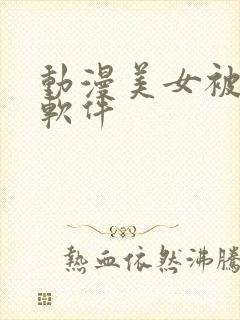 動漫美女被
軟件
熱血依然沸騰